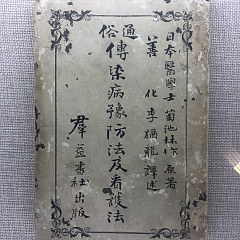 日本醫學士菊池林作原著
善化李猶龍譯述
通俗
傳染病豫防法及看護法
羣益書社出版